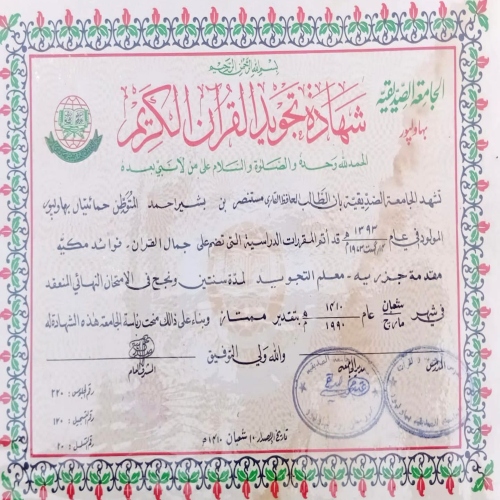 بسم الله الرحمن الرحيم
الجامعة الصديقية
بهاولپور
شهادة تجويد القرآن الكريم
الحمد لله وحده والصلوة والسلام على من لا نبي بعده
تشهد الجامعة الصديقية بان الطالب الحافظ القاری مستنصر بن بشير احمد المتوطن بهاولپور
المولود فی عام ١٣٩٣ھ ١٩٧٣م قد اتم المقررات الدراسية التی تضم على جمال القرآن۔ فوائد مكيه
مقدمة جزريه۔ معلم التجويد لمدة سنتين ونجح فی الامتحان النهائی المنعقد
فی شهر شعبان مارچ عام ١٤١٠ھ ١٩٩٠م بتقدير ممتاز وبناء على ذالك منحت رئاسة الجامعة هذه الشهادة له
والله ولی التوفيق
المدرس
مدير الجامعة
المشرف العام
رقم الجلوس: ٢٢٠
رقم التسجيل: ١٢٠
تاريخ الاصدار ١٠ شعبان ١٤١٠ھ